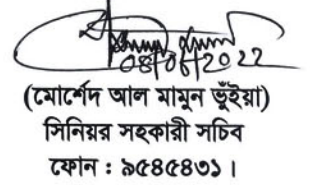 08/06/2022
(মোর্শেদ আল মামুন ভুঁইয়া)
সিনিয়র সহকারী সচিব
ফোন : ৯৫৪৫৪৩১।